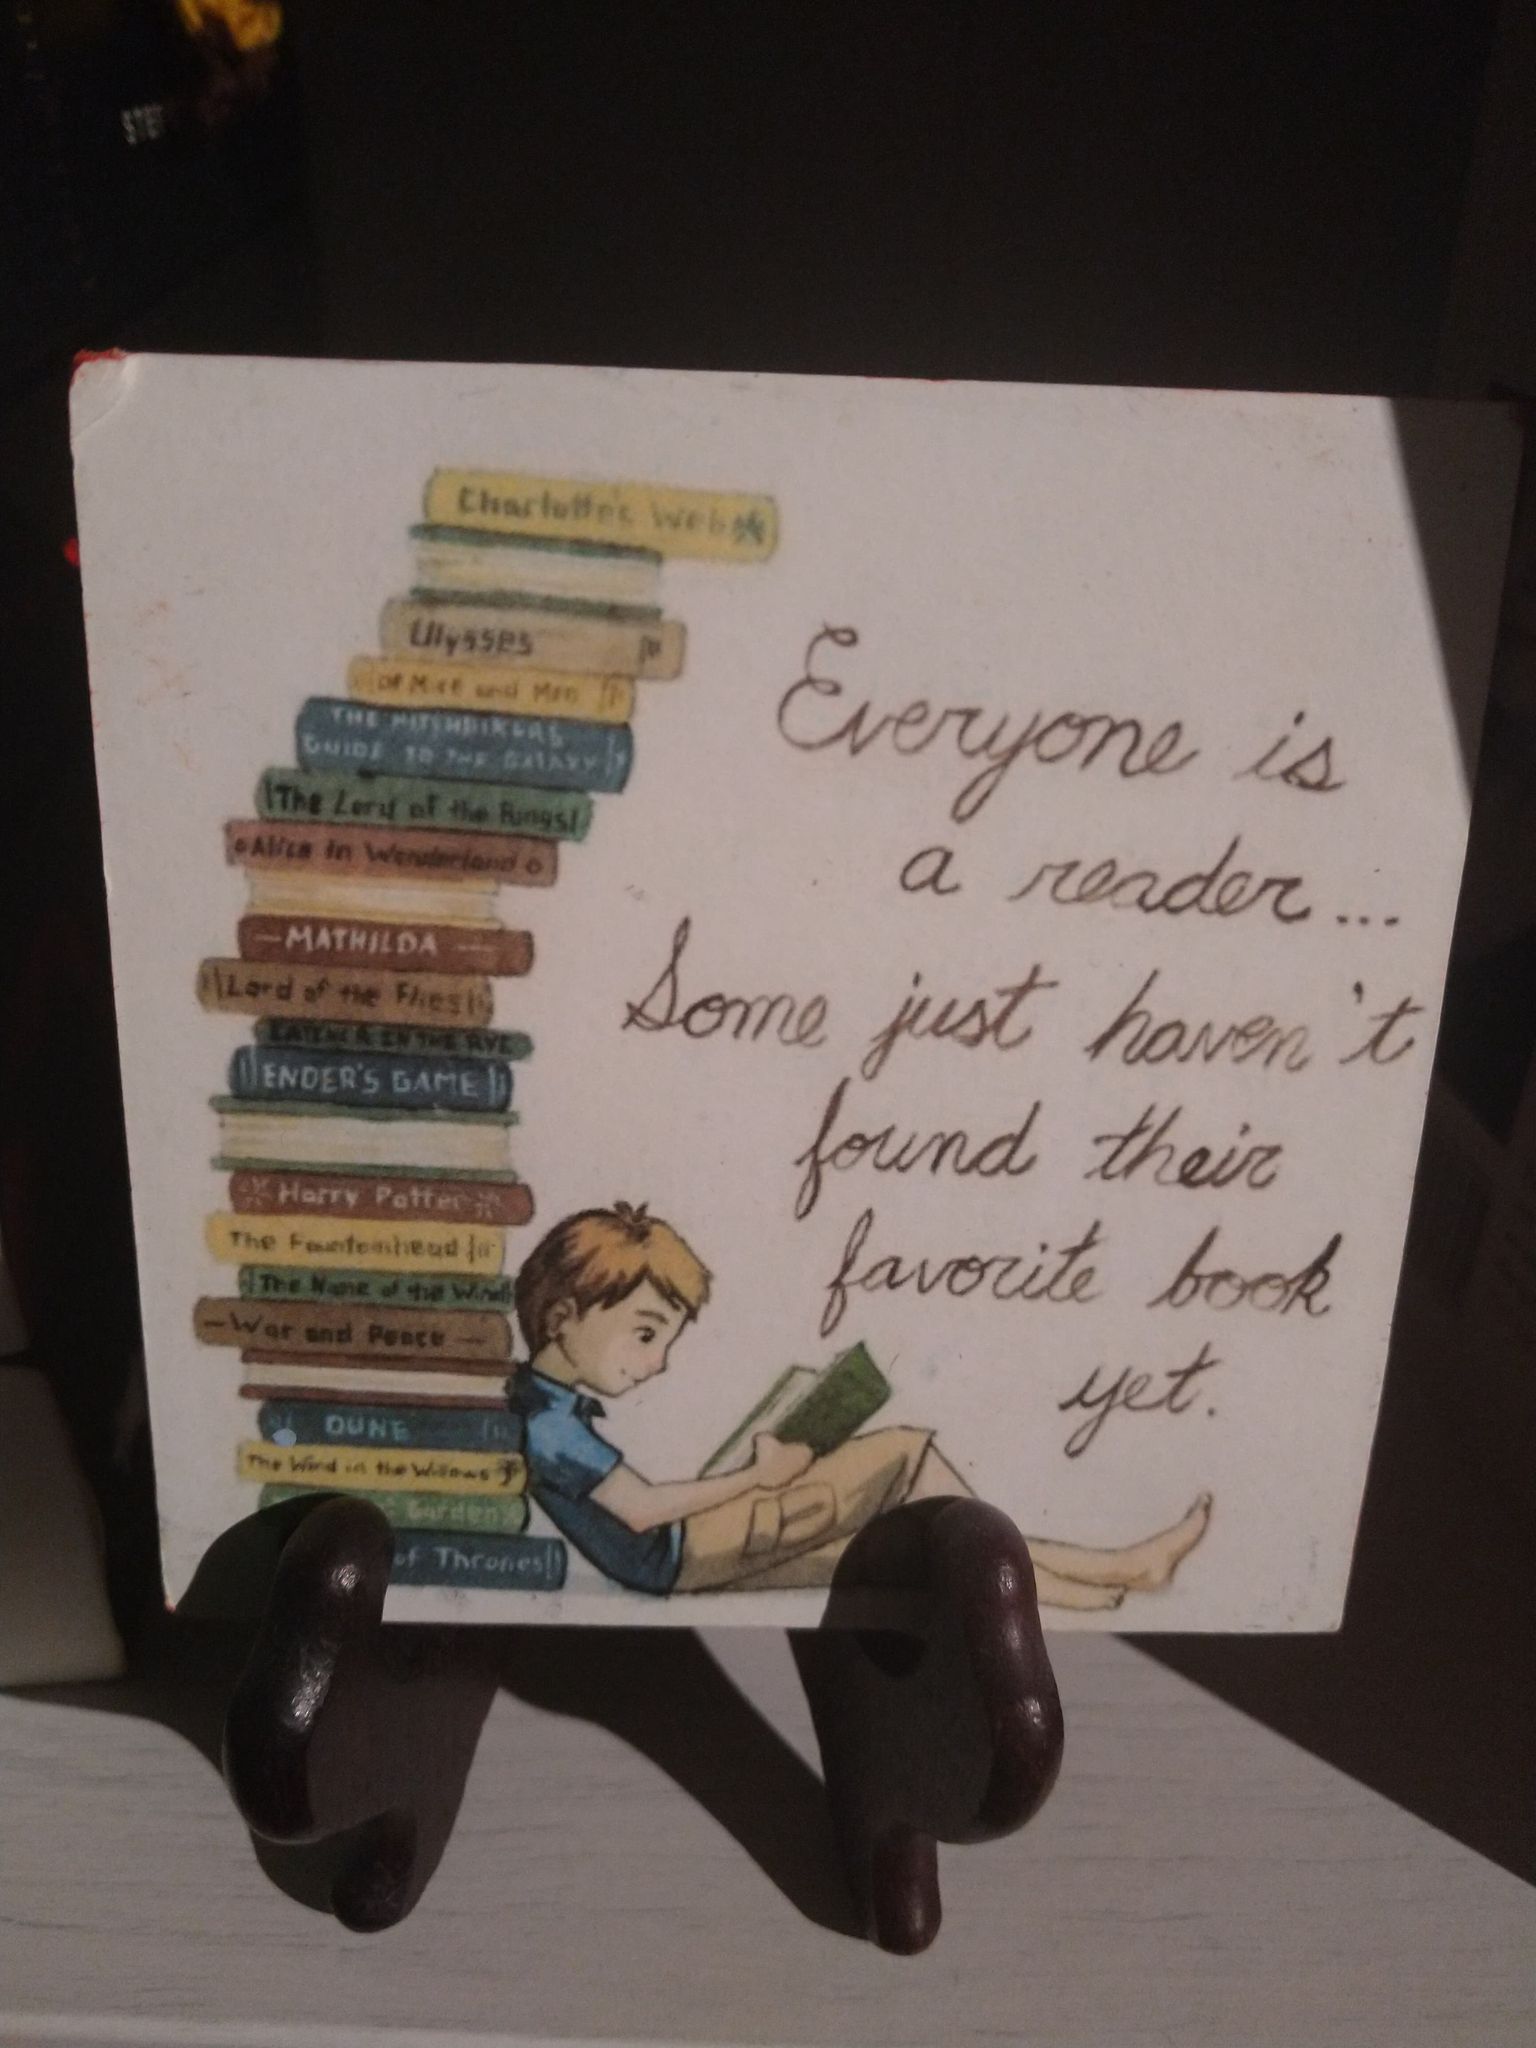 Charlotte's Web
Ulysses
Of Mice and Men
THE HITCHHIKERS
GUIDE TO THE GALAXY
The Lord of the Rings
Alice in Wonderland
MATHILDA
Lord of the Flies
IN THE RYE
ENDER'S GAME
Harry Potter
The
The Name of the Wind
War and Peace
DUNE
The Wind in the Willows
Garden
of Thrones
Everyone is
a reader...
Some just haven't
found their
favorite book
yet.